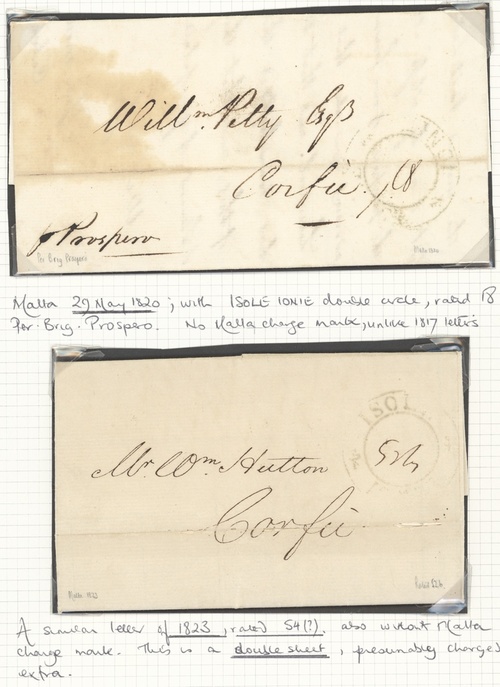 Willm. Petty Esqr
Corfu 18
p Prospero
Per Brig Prospero
Malta 1820
Malta 29 May 1820; with ISOLE IONIE double circle, rated 18
Per. Brig. Prospero. No Malta charge mark, unlike 1817 letters
ISOL
Mr. Wm. Hutton
Corfu
Malta 1823
A similar letter of 1823, rated 54(?), also without Malta
charge mark. This is a double sheet, presumably charged
extra.